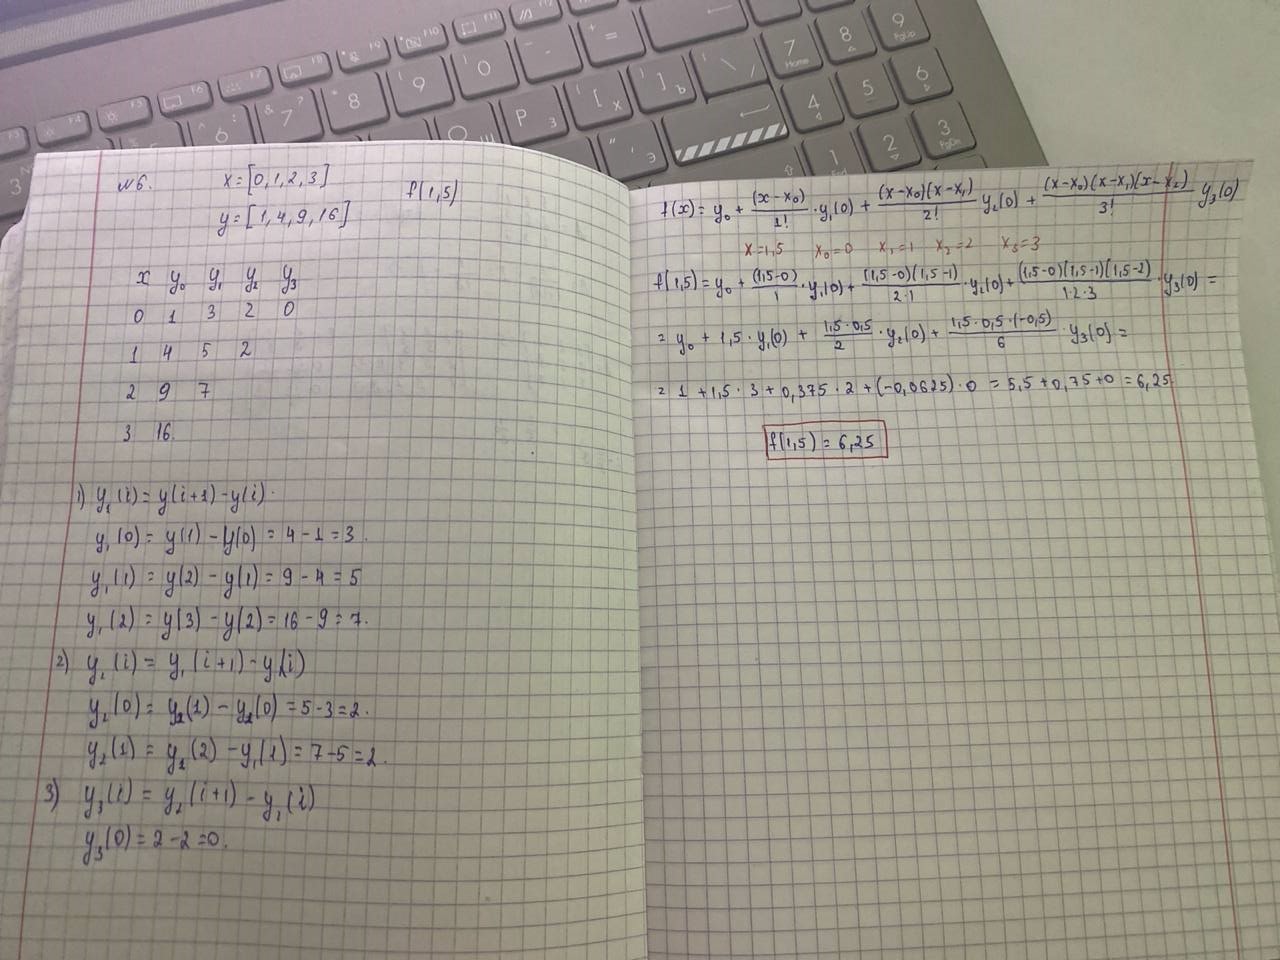 №6. x = [0, 1, 2, 3] f(1,5)
y = [1, 4, 9, 16]
x y₀ y₁ y₂ y₃
0 1 3 2 0
1 4 5 2
2 9 7
3 16.
1) y₁(i) = y(i+1) - y(i).
y₁(0) = y(1) - y(0) = 4 - 1 = 3.
y₁(1) = y(2) - y(1) = 9 - 4 = 5
y₁(2) = y(3) - y(2) = 16 - 9 = 7.
2) y₂(i) = y₁(i+1) - y₁(i)
y₂(0) = y₁(1) - y₁(0) = 5 - 3 = 2.
y₂(1) = y₁(2) - y₁(1) = 7 - 5 = 2.
3) y₃(i) = y₂(i+1) - y₁(i)
y₃(0) = 2 - 2 = 0.
f(x) = y₀ + (x-x₀)/1! · y₁(0) + (x-x₀)(x-x₁)/2! y₂(0) + (x-x₀)(x-x₁)(x-x₂)/3! y₃(0)
x=1,5 x₀=0 x₁=1 x₂=2 x₃=3
f(1,5) = y₀ + (1,5-0)/1 · y₁(0) + (1,5-0)(1,5-1)/2·1 · y₂(0) + (1,5-0)(1,5-1)(1,5-2)/1·2·3 · y₃(0) =
= y₀ + 1,5 · y₁(0) + 1,5·0,5/2 · y₂(0) + 1,5·0,5·(-0,5)/6 · y₃(0) =
= 1 + 1,5 · 3 + 0,375 · 2 + (-0,0625) · 0 = 5,5 + 0,75 + 0 = 6,25
f(1,5) = 6,25